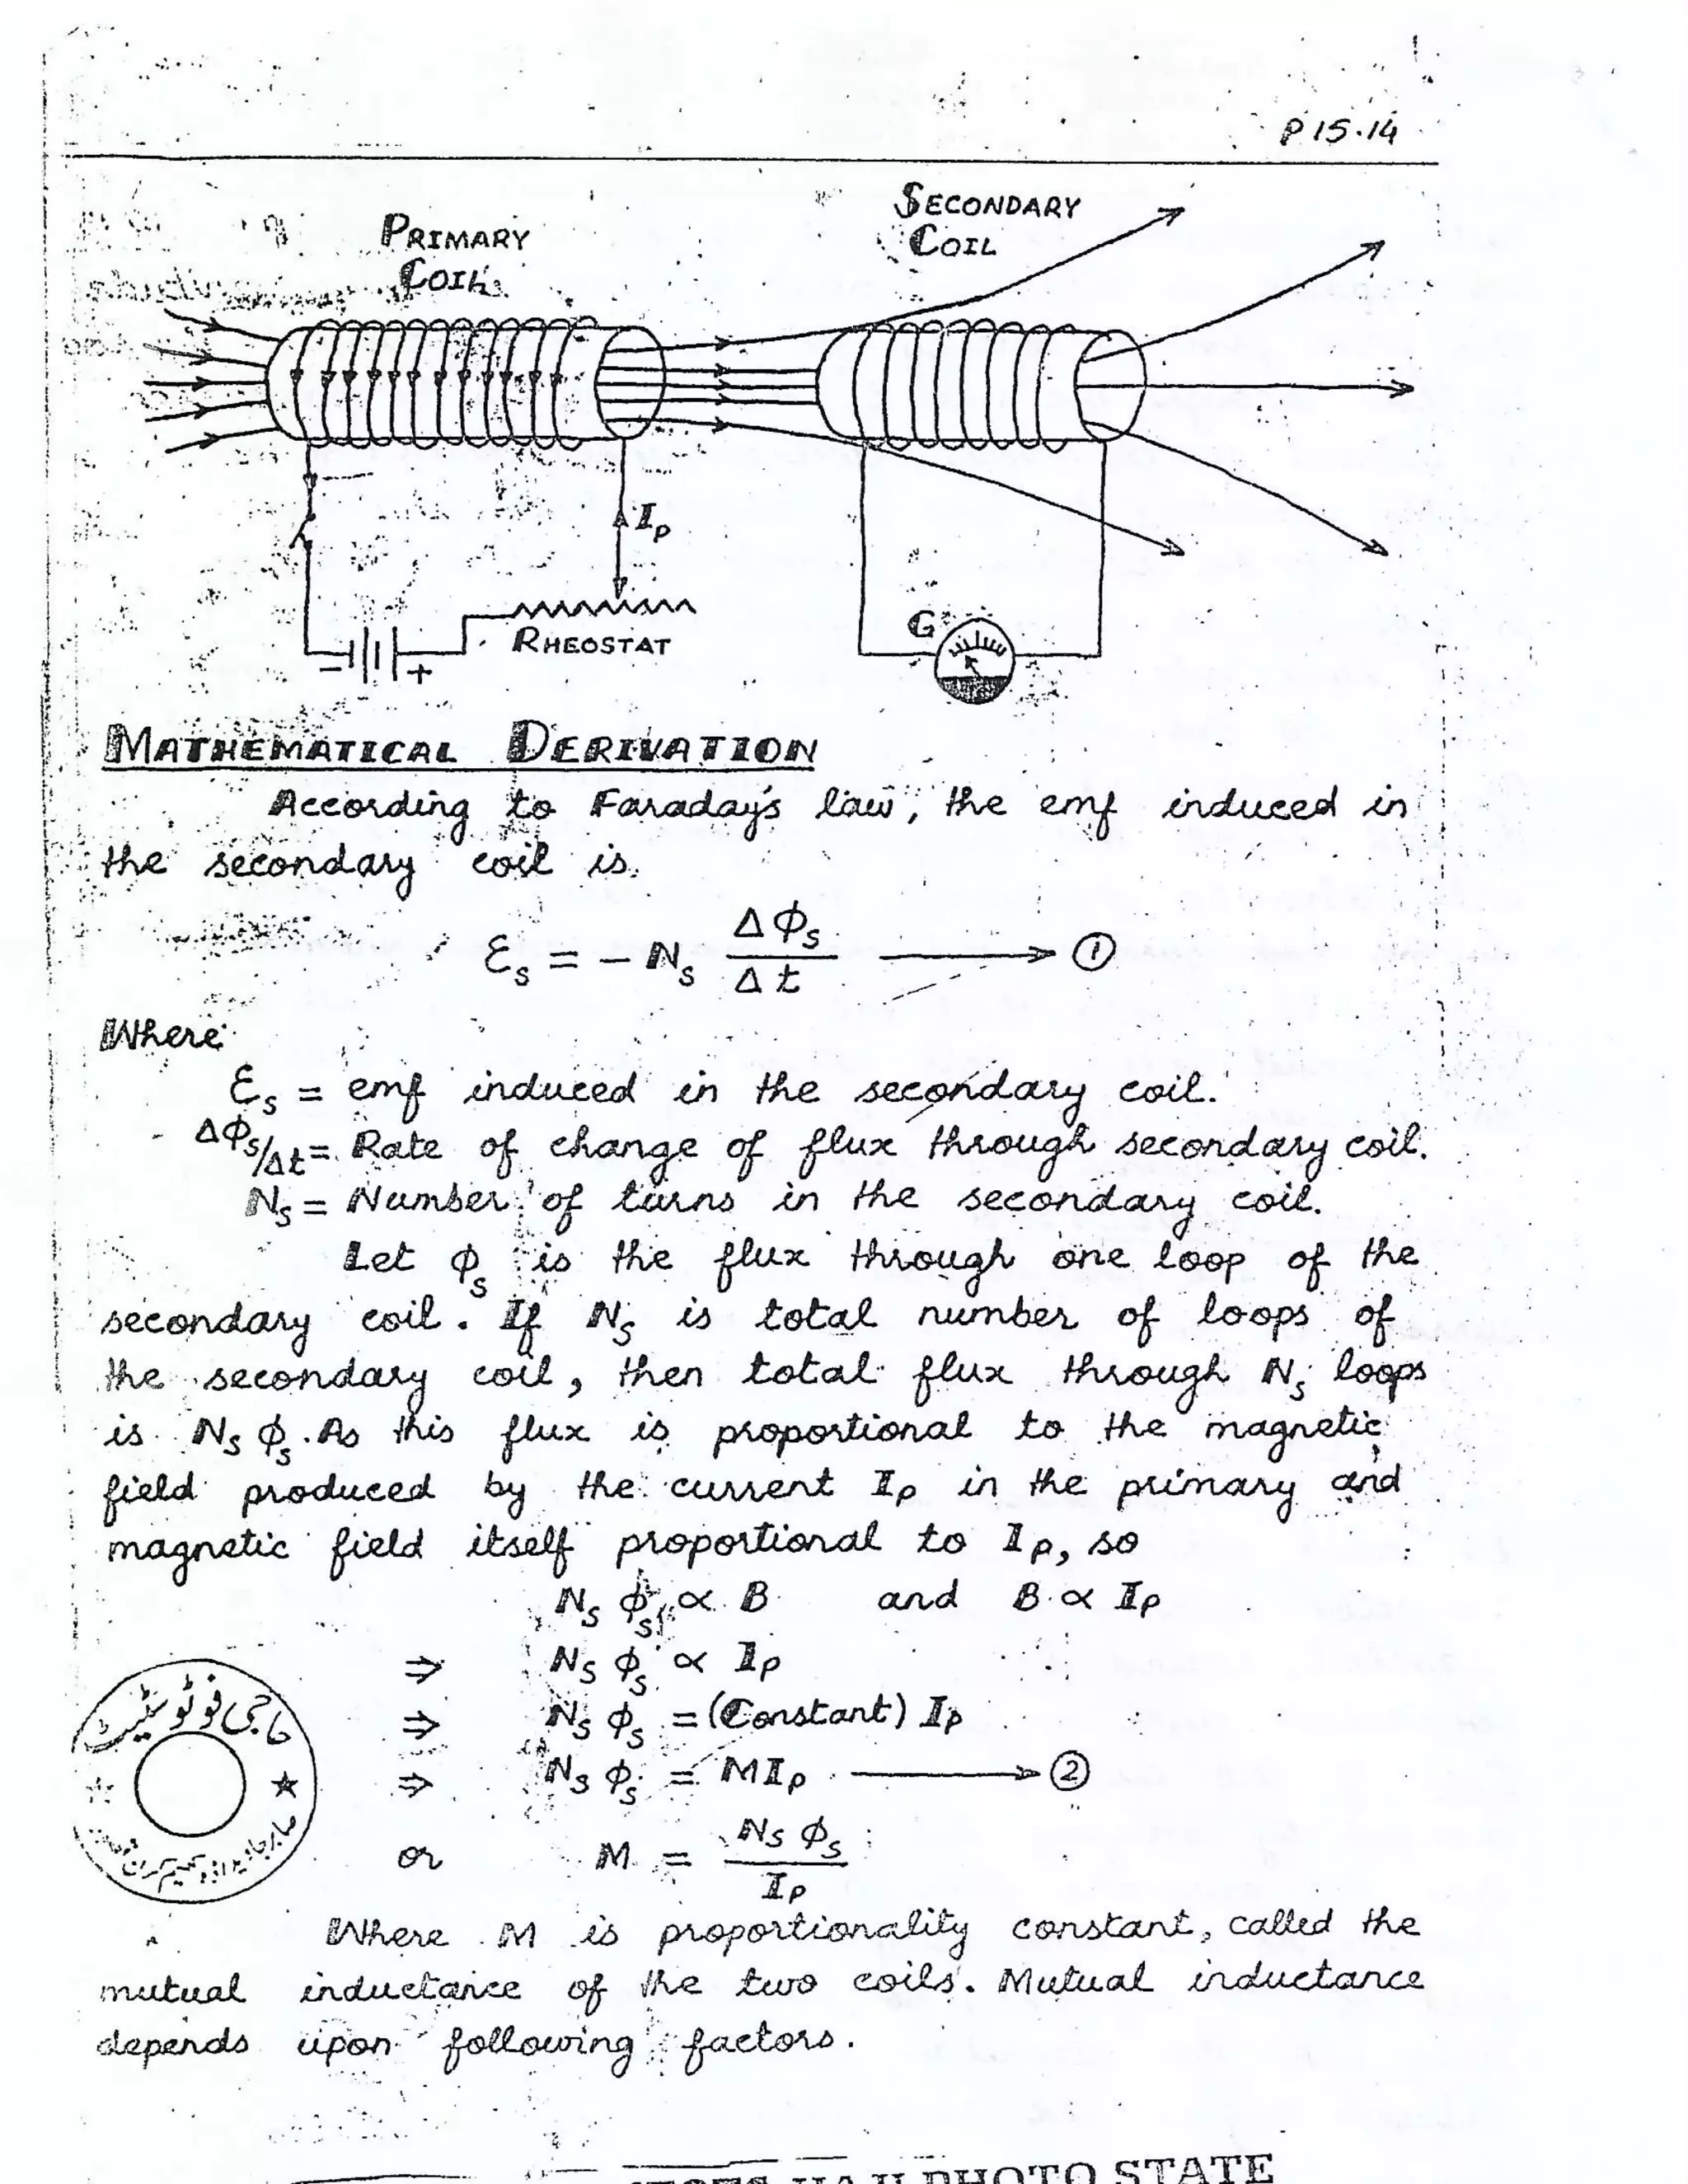 P 15.14
SECONDARY
COIL
PRIMARY
COIL
Ip
G
RHEOSTAT
- +
MATHEMATICAL DERIVATION
According to Faraday's law, the emf induced in
the secondary coil is.
Ɛs = - Ns ΔΦs/Δt ⟶ ①
Where
Ɛs = emf induced in the secondary coil.
ΔΦs/Δt = Rate of change of flux through secondary coil.
Ns = Number of turns in the secondary coil.
Let Φs is the flux through one loop of the
secondary coil. If Ns is total number of loops of
the secondary coil, then total flux through Ns loops
is Ns Φs. As this flux is proportional to the magnetic
field produced by the current Ip in the primary and
magnetic field itself proportional to Ip, so
Ns Φs ∝ B and B ∝ Ip
⇒ Ns Φs ∝ Ip
⇒ Ns Φs = (Constant) Ip
⇒ Ns Φs = MIp ⟶ ②
or M = Ns Φs / Ip
حاجی فوٹو سٹیٹ
Where M is proportionality constant, called the
mutual inductance of the two coils. Mutual inductance
depends upon following factors.
HAJI PHOTO STATE